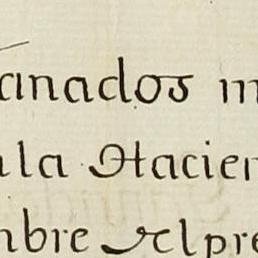 anados m
la Hacien
nbre el pre